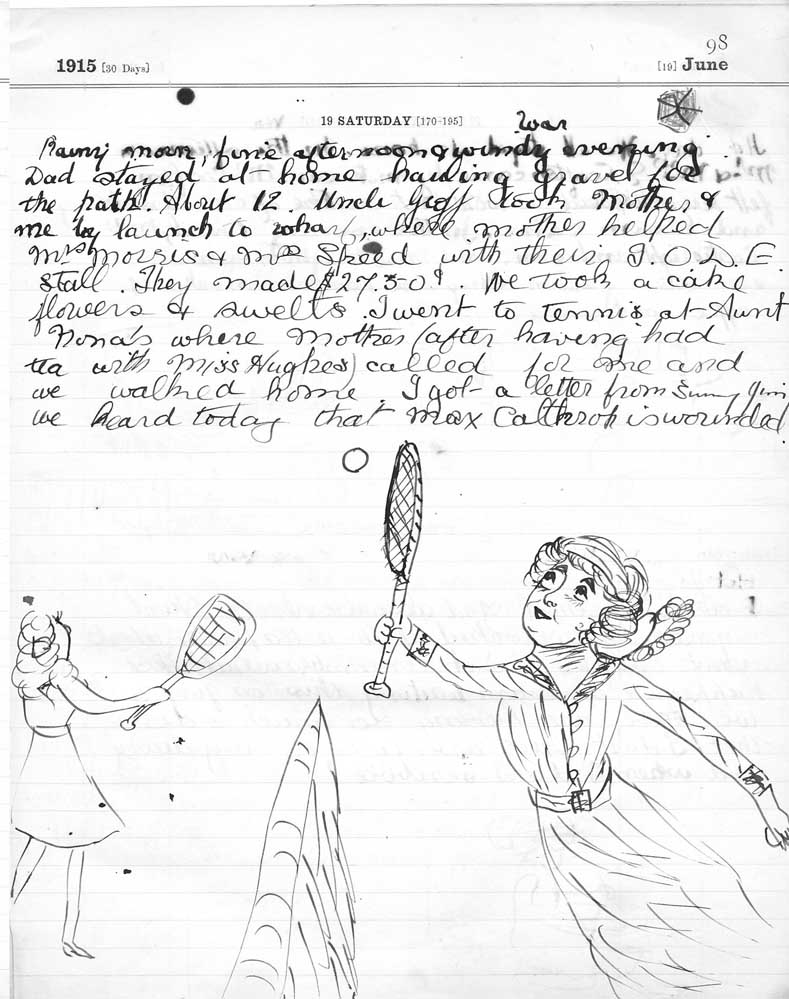 98
1915 [30 Days] [19] June
19 SATURDAY [170-195]
War
Rainy morn, fine afternoon & windy evening.
Dad stayed at home hauling gravel for
the path. About 12. Uncle Geoff took Mother &
me by launch to wharf, where mother helped
Mrs Morris & Mrs Speed with their I.O.D.E
Stall. They made $27.50. We took a cake
flowers & swells. I went to tennis at Aunt
Nona's where Mother (after having had
tea with Miss Hughes) called for me and
we walked home. I got a letter from Sunny Jim
we heard today that Max Calthrop is wounded.